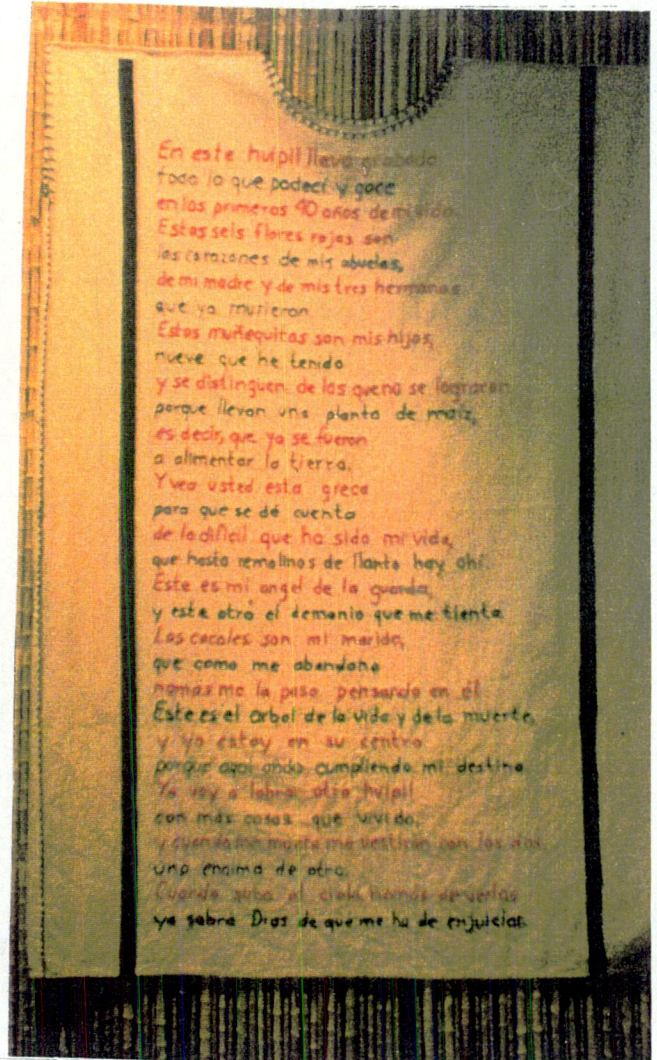 En este huipil llevo grabado
todo lo que padecí y goce
en los primeros 40 años de mi vida.
Estas seis flores rojas son
los corazones de mis abuelas,
de mi madre y de mis tres hermanas
que ya murieron
Estos muñequitos son mis hijos,
nueve que he tenido
y se distinguen de los que no se lograron
porque llevan una planta de maíz,
es decir, que ya se fueron
a alimentar la tierra.
Y vea usted esta greca
para que se dé cuenta
de lo difícil que ha sido mi vida,
que hasta remolinos de llanto hay ahí.
Este es mi angel de la guarda,
y este otro el demonio que me tienta
Los cocoles son mi marido,
que como me abandono
nomás me la paso pensando en él
Este es el arbol de la vida y de la muerte,
y yo estoy en su centro
porque aquí ando cumpliendo mi destino
Ya voy a labrar otro huipil
con más cosas que vivido,
y cuando me muera me vestirán con los dos,
uno encima de otro.
Cuando suba al cielo, nomás de verlos
ya sabra Dios de que me ha de enjuiciar.